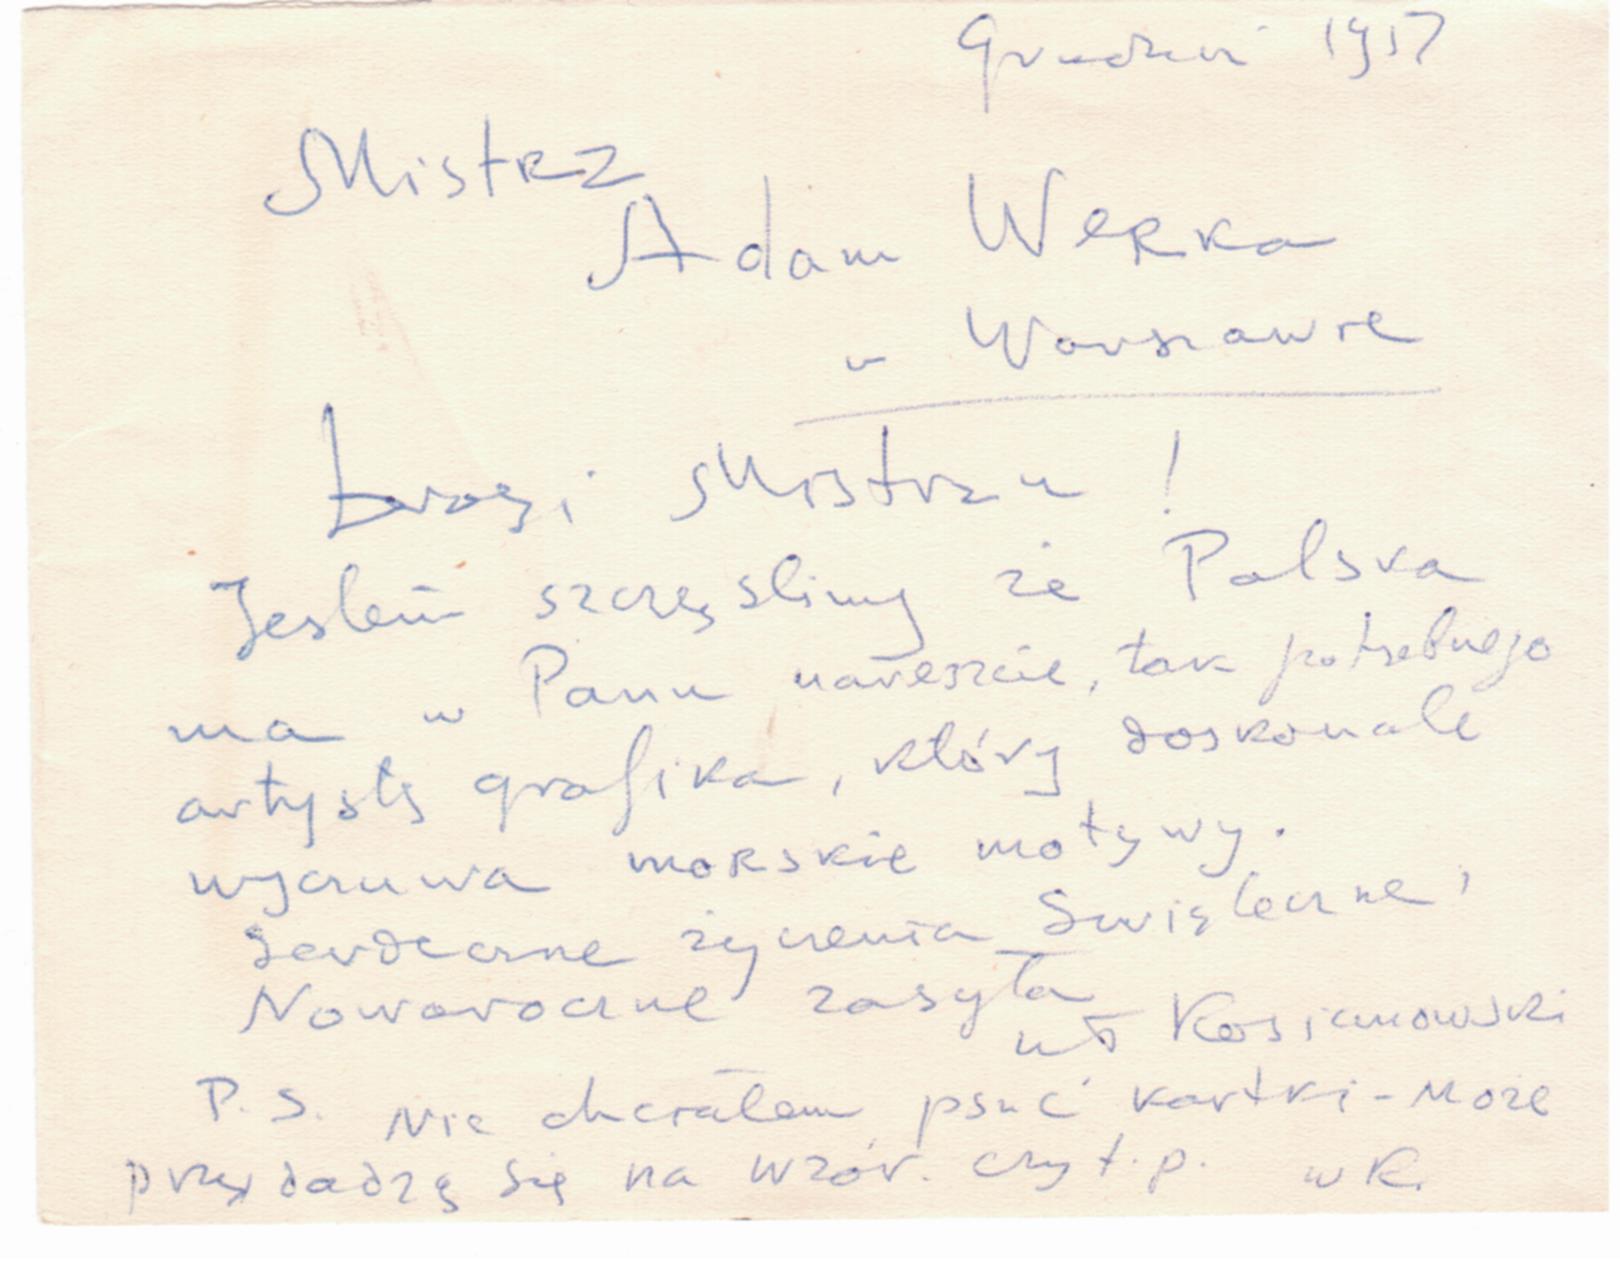 Grudzień 1957
Mistrz
Adam Werka
w Warszawie
Drogi Mistrzu !
Jestem szczęśliwy że Polska
ma w Panu nareszcie, tak potrzebnego
artystę grafika, który doskonale
wyczuwa morskie motywy.
Serdeczne życzenia Świąteczne i
Noworoczne zasyła
Kosianowski
P.S. Nie chciałem psuć kartki - może
przydadzą się na wzór. czy t.p. WK.